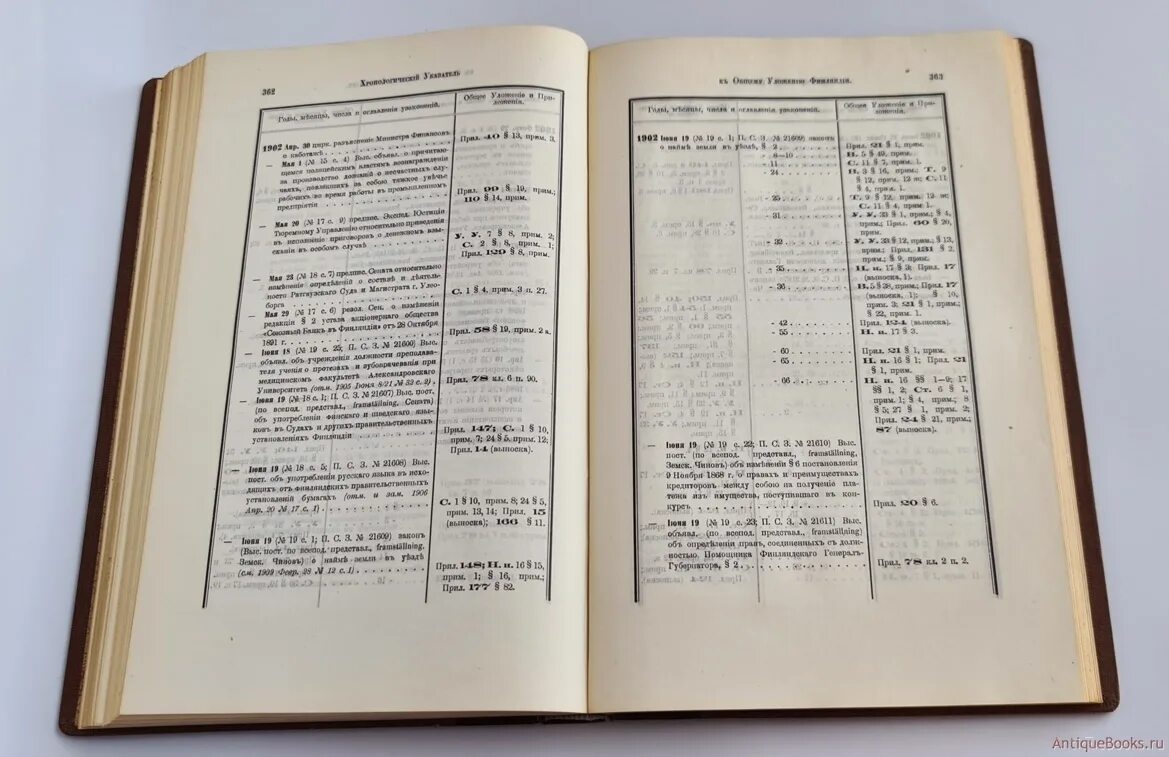 362
Хронологическій Указатель
Годы, мѣсяцы, числа и оглавленія узаконеній.
Общее Уложеніе и При-
ложенія.
1902 Апр. 30 цирк. разъясненіе Министра Финансовъ
о каботажѣ
Прил. 40 § 13, прим. 3.
— Мая 1 (№ 15 с. 4) Выс. объявл. о причитаю-
щемся полицейскимъ властямъ вознагражденіи
за производство дознаній о несчастныхъ слу-
чаяхъ, повлекшихъ за собою тяжкое увѣчье
рабочихъ во время работы въ промышленномъ
предпріятіи
Прил. 90 § 19, прим.;
110 § 14, прим.
— Мая 20 (№ 17 с. 9) предпис. Экспед. Юстиціи
Тюремному Управленію относительно приведенія
въ исполненіе приговоровъ о денежномъ взы-
сканіи въ особомъ случаѣ
У. У. 7 § 8, прим. 2;
С. 2 § 8, прим. 1;
Прил. 120 § 8, прим.
— Мая 23 (№ 18 с. 7) предпис. Сената относительно
измѣненія опредѣленій о составѣ и дѣятель-
ности Ратгаузскаго Суда и Магистрата г. Улео-
борга
С. 1 § 4, прим. 3 п. 27.
— Мая 29 (№ 17 с. 6) резол. Сен. о измѣненіи
редакціи § 2 устава акціонернаго общества
«Союзный Банкъ въ Финляндіи» отъ 28 Октября
1891 г.
Прил. 58 § 19, прим. 2 а.
— Іюня 18 (№ 19 с. 25; П. С. З. № 21600) Выс.
объявл. объ учрежденіи должности преподава-
теля ученія о протезахъ и зубоврачеванія при
медицинскомъ Факультетѣ Александровскаго
Университета (отм. 1905 Іюня 8/21 № 33 с. 9)
Прил. 78 кл. 6 п. 90.
— Іюня 19 (№ 18 с. 1; П. С. З. № 21607) Выс. пост.
(по всепод. представл., framställning, Сената)
объ употребленіи финскаго и шведскаго язы-
ковъ въ Судахъ и другихъ правительственныхъ
установленіяхъ Финляндіи
Прил. 147; С. 1 § 10,
прим. 7; 24 § 5, прим. 12;
Прил. 14 (выноска).
— Іюня 19 (№ 18 с. 5; П. С. З. № 21608) Выс.
пост. объ употребленіи русскаго языка въ исхо-
дящихъ отъ финляндскихъ правительственныхъ
установленій бумагахъ (отм. и зам. 1906
Апр. 20 № 17 с. 1)
С. 1 § 10, прим. 8; 24 § 5,
прим. 13, 14; Прил. 15
(выноска); 166 § 11.
— Іюня 19 (№ 19 с. 1; П. С. З. № 21609) законъ
(Выс. пост. по всепод. представл., framställning,
Земск. Чиновъ) о наймѣ земли въ уѣздѣ
(см. 1909 Февр. 28 № 12 с. 1)
Прил. 148; Н. и. 16 § 15,
прим. 1; § 16, прим.;
Прил. 177 § 82.
къ Общему Уложенію Финляндіи.
363
Годы, мѣсяцы, числа и оглавленія узаконеній.
Общее Уложеніе и При-
ложенія.
1902 Іюня 19 (№ 19 с. 1; П. С. З. № 21609) законъ
о наймѣ земли въ уѣздѣ, § 2
Прил. 21 § 1, прим.
- 8—10
В. 5 § 49, прим.
- 11
С. 11 § 7, прим. 1.
- 24
В. 3 § 16, прим.; Т. 9
§ 12, прим. 12 ж; С. 11
§ 4, прим. 1.
- 25
Т. 9 § 12, прим. 12 ж;
С. 11 § 4, прим. 1.
- 31
У. У. 33 § 1, прим.; § 4,
прим.; Прил. 60 § 20,
прим.
- 32
У. У. 33 § 12, прим.; § 13,
прим.; Прил. 131 § 2,
прим.; § 9, прим.
- 35
Н. и. 17 § 3; Прил. 17
(выноска, 1).
- 36
В. 5 § 38, прим.; Прил. 17
(выноска, 1); § 10,
прим. 3; 21 § 1, прим.;
§ 22, прим. 1.
- 42
Прил. 124 (выноска).
- 55
Н. и. 17 § 3.
- 60
Прил. 21 § 1, прим.
- 65
Н. и. 16 § 1; Прил. 21
§ 1, прим.
- 66
Н. и. 16 §§ 1—9; 17
§§ 1, 2; Ст. 6 § 1,
прим. 1; § 4, прим.; 8
§ 5; 27 § 1, прим. 2;
Прил. 24 § 21, прим.;
87 (выноска).
— Іюня 19 (№ 19 с. 22; П. С. З. № 21610) Выс.
пост. (по всепод. представл., framställning,
Земск. Чиновъ) объ измѣненіи § 6 постановленія
9 Ноября 1868 г. о правахъ и преимуществахъ
кредиторовъ между собою на полученіе пла-
тежа изъ имущества, поступившаго въ кон-
курсъ
Прил. 20 § 6.
— Іюня 19 (№ 19 с. 23; П. С. З. № 21611) Выс.
объявл. (по всепод. представл., framställning)
объ опредѣленіи правъ, соединенныхъ съ долж-
ностью Помощника Финляндскаго Генералъ-
Губернатора, § 2
Прил. 78 кл. 2 п. 2.
AntiqueBooks.ru